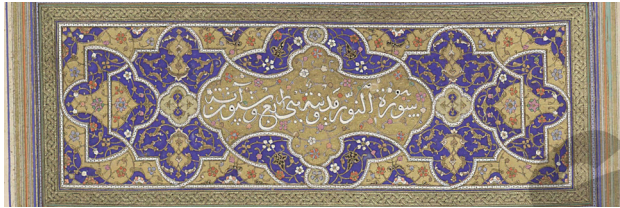 سورة النور مدنية اربع وستون آية